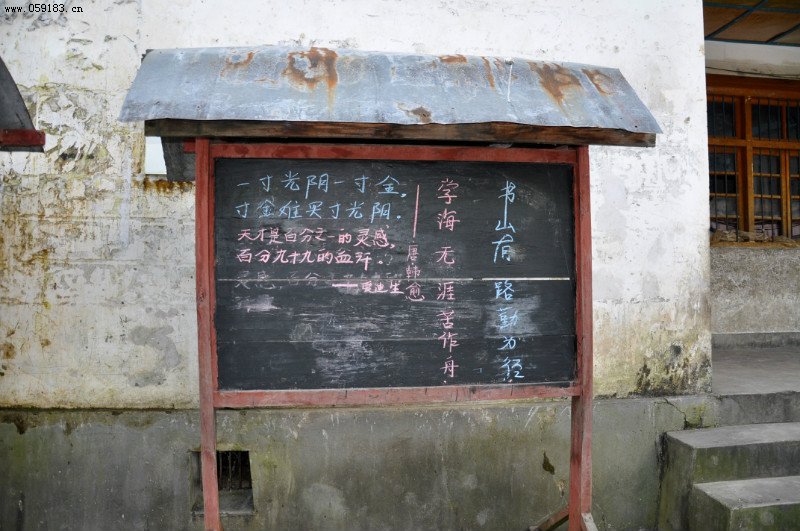 www.059183.cn
一寸光阴一寸金，
寸金难买寸光阴。
天才是百分之一的灵感，
百分九十九的血汗。
——爱迪生
书山有路勤为径
学海无涯苦作舟
——唐韩愈